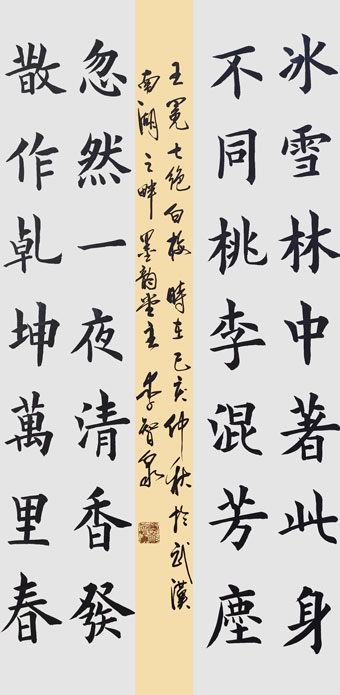 冰雪林中著此身
不同桃李混芳塵
忽然一夜清香發
散作乾坤萬里春
王冕七絕白梅 時在己亥仲秋於武漢
南湖之畔墨韵堂主 李智泉